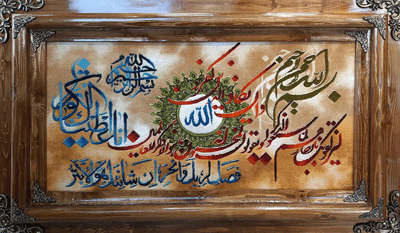 بسم الله الرحمن الرحيم
وإن يكاد الذين كفروا
ليزلقونك بأبصارهم لما سمعوا الذكر ويقولون إنه لمجنون وما هو إلا ذكر للعالمين
الله
بسم الله الرحمن الرحيم
إنا أعطيناك الكوثر
فصل لربك وانحر إن شانئك هو الأبتر